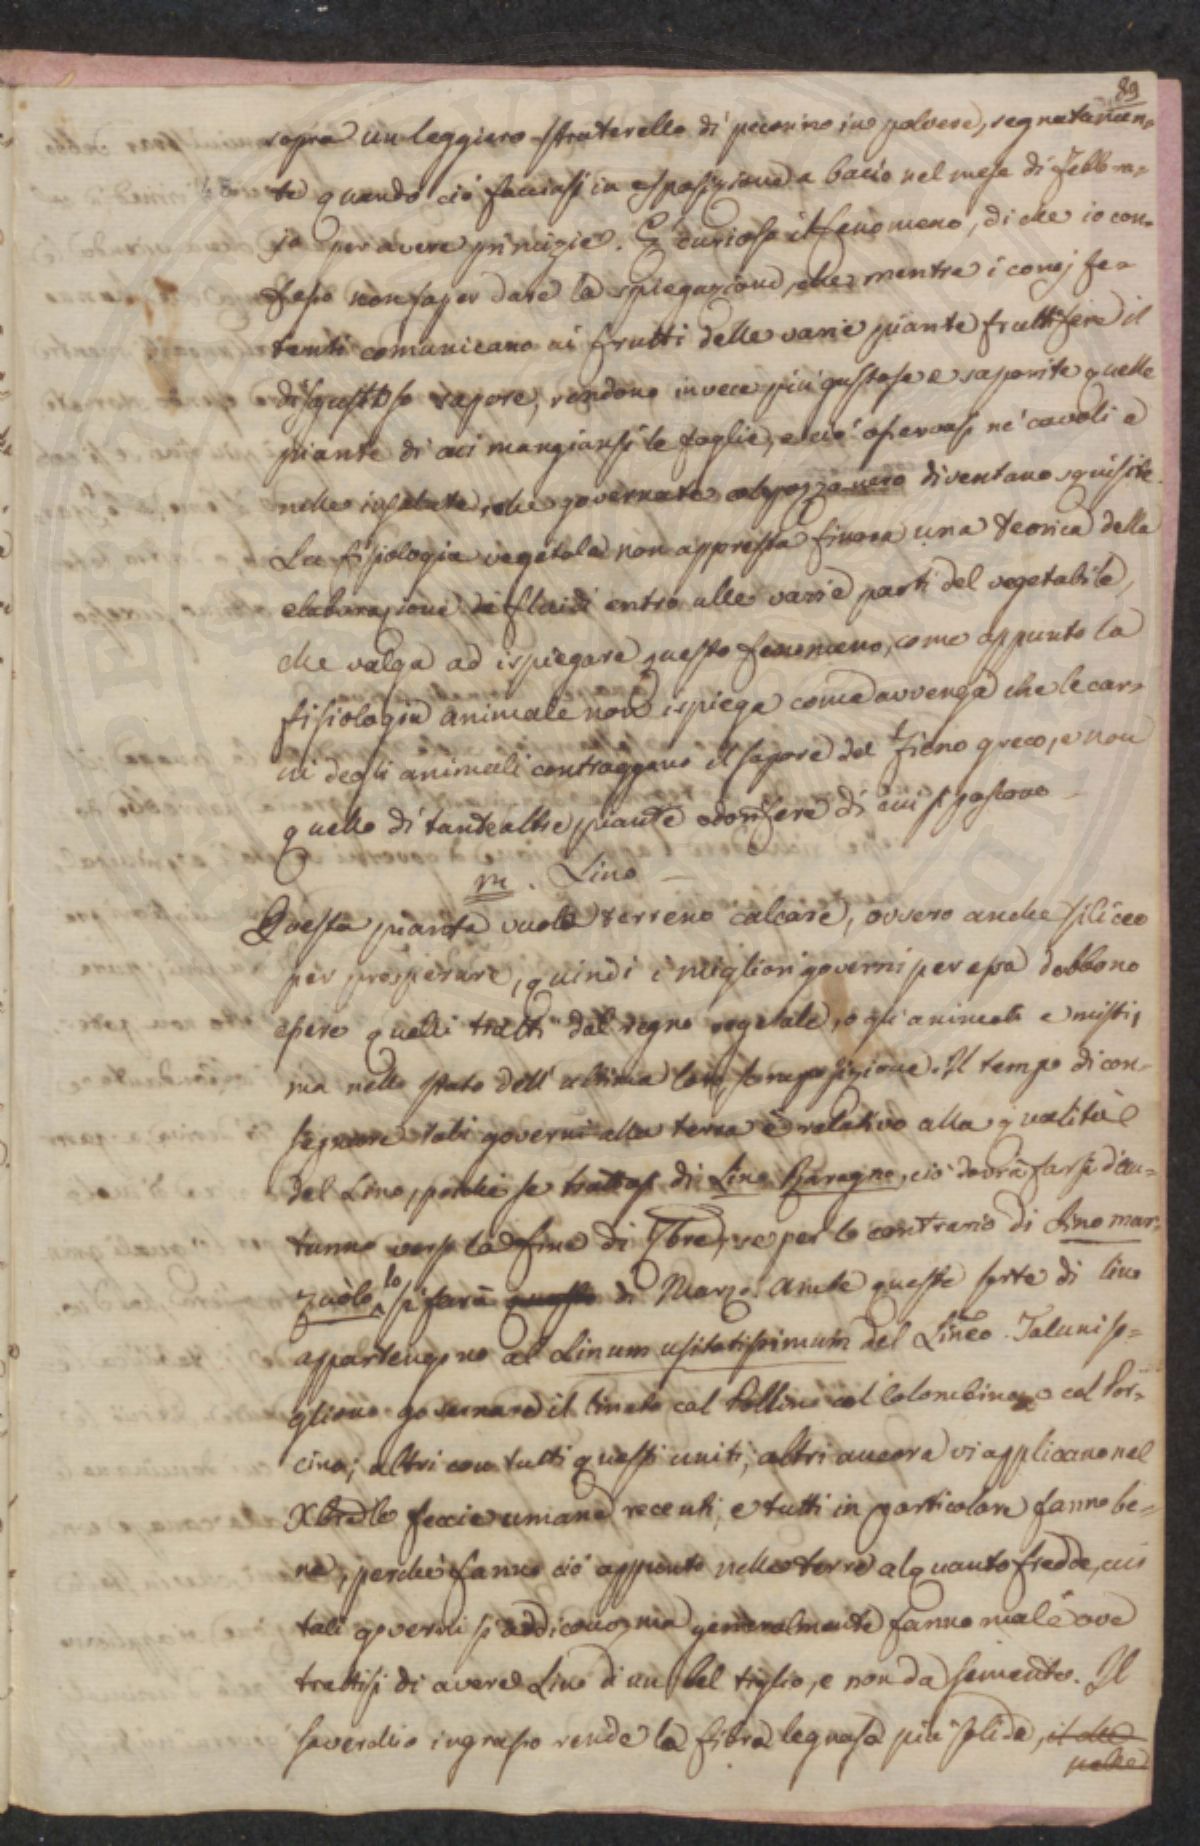 89
sopra un leggiero straterello di pecorino in polvere, segnatamen-
te quando ciò facciasi in esposizione a bacìo nel mese di Febbra-
jo per avere primizie. È curioso il fenomeno, di che io con-
fesso non saper dare la spiegazione, che mentre i concj fe-
tenti comunicano ai frutti delle varie piante fruttifere il
disgustoso sapore, rendono invece più gustose e saporite quelle
piante di cui mangiansi le foglie, e ciò osservasi ne' cavoli e
nelle insalate, che governate col pozzo nero diventano squisite.
La fisiologia vegetale non appresta finora una teorica della
elaborazione de' fluidi entro alle varie parti del vegetabile,
che valga ad ispiegare questo fenomeno, come appunto la
fisiologia animale non ispiega come avvenga che le car-
ni degli animali contraggano il sapore del fieno greco, e non
quello di tante altre piante odorifere di cui si pascono
m. Lino
Questa pianta vuole terreno calcare, ovvero anche siliceo
per prosperare, quindi i migliori governi per essa debbono
essere quelli tratti dal regno vegetale, o gli animali e misti,
ma nello stato dell'ultima loro scomposizione. Il tempo di con-
segnare tali governi alla terra è relativo alla qualità
del Lino, poiché se trattasi di Lino Ravagno, ciò dovrà farsi d'au-
tunno verso la fine di 7bre, se per lo contrario di Lino mar-
zuolo, lo si farà questo di Marzo. Ambe queste sorte di lino
appartengono al Linum usitatissimum del Lineo. Taluni so-
gliono governare il lineto col Pollino col Colombino, o col Por-
cino; altri con tutti questi uniti; altri ancora vi applicano nel
Xbre le feccie umane recenti, e tutti in particolare fanno be-
ne, perché fanno ciò appunto nelle terre alquanto fredde, cui
tali governi si addicono, ma generalmente fanno male ove
trattisi di avere Lino di un bel tiglio, e non da semente. Il
soverchio ingrasso rende la fibra legnosa più solida, il che